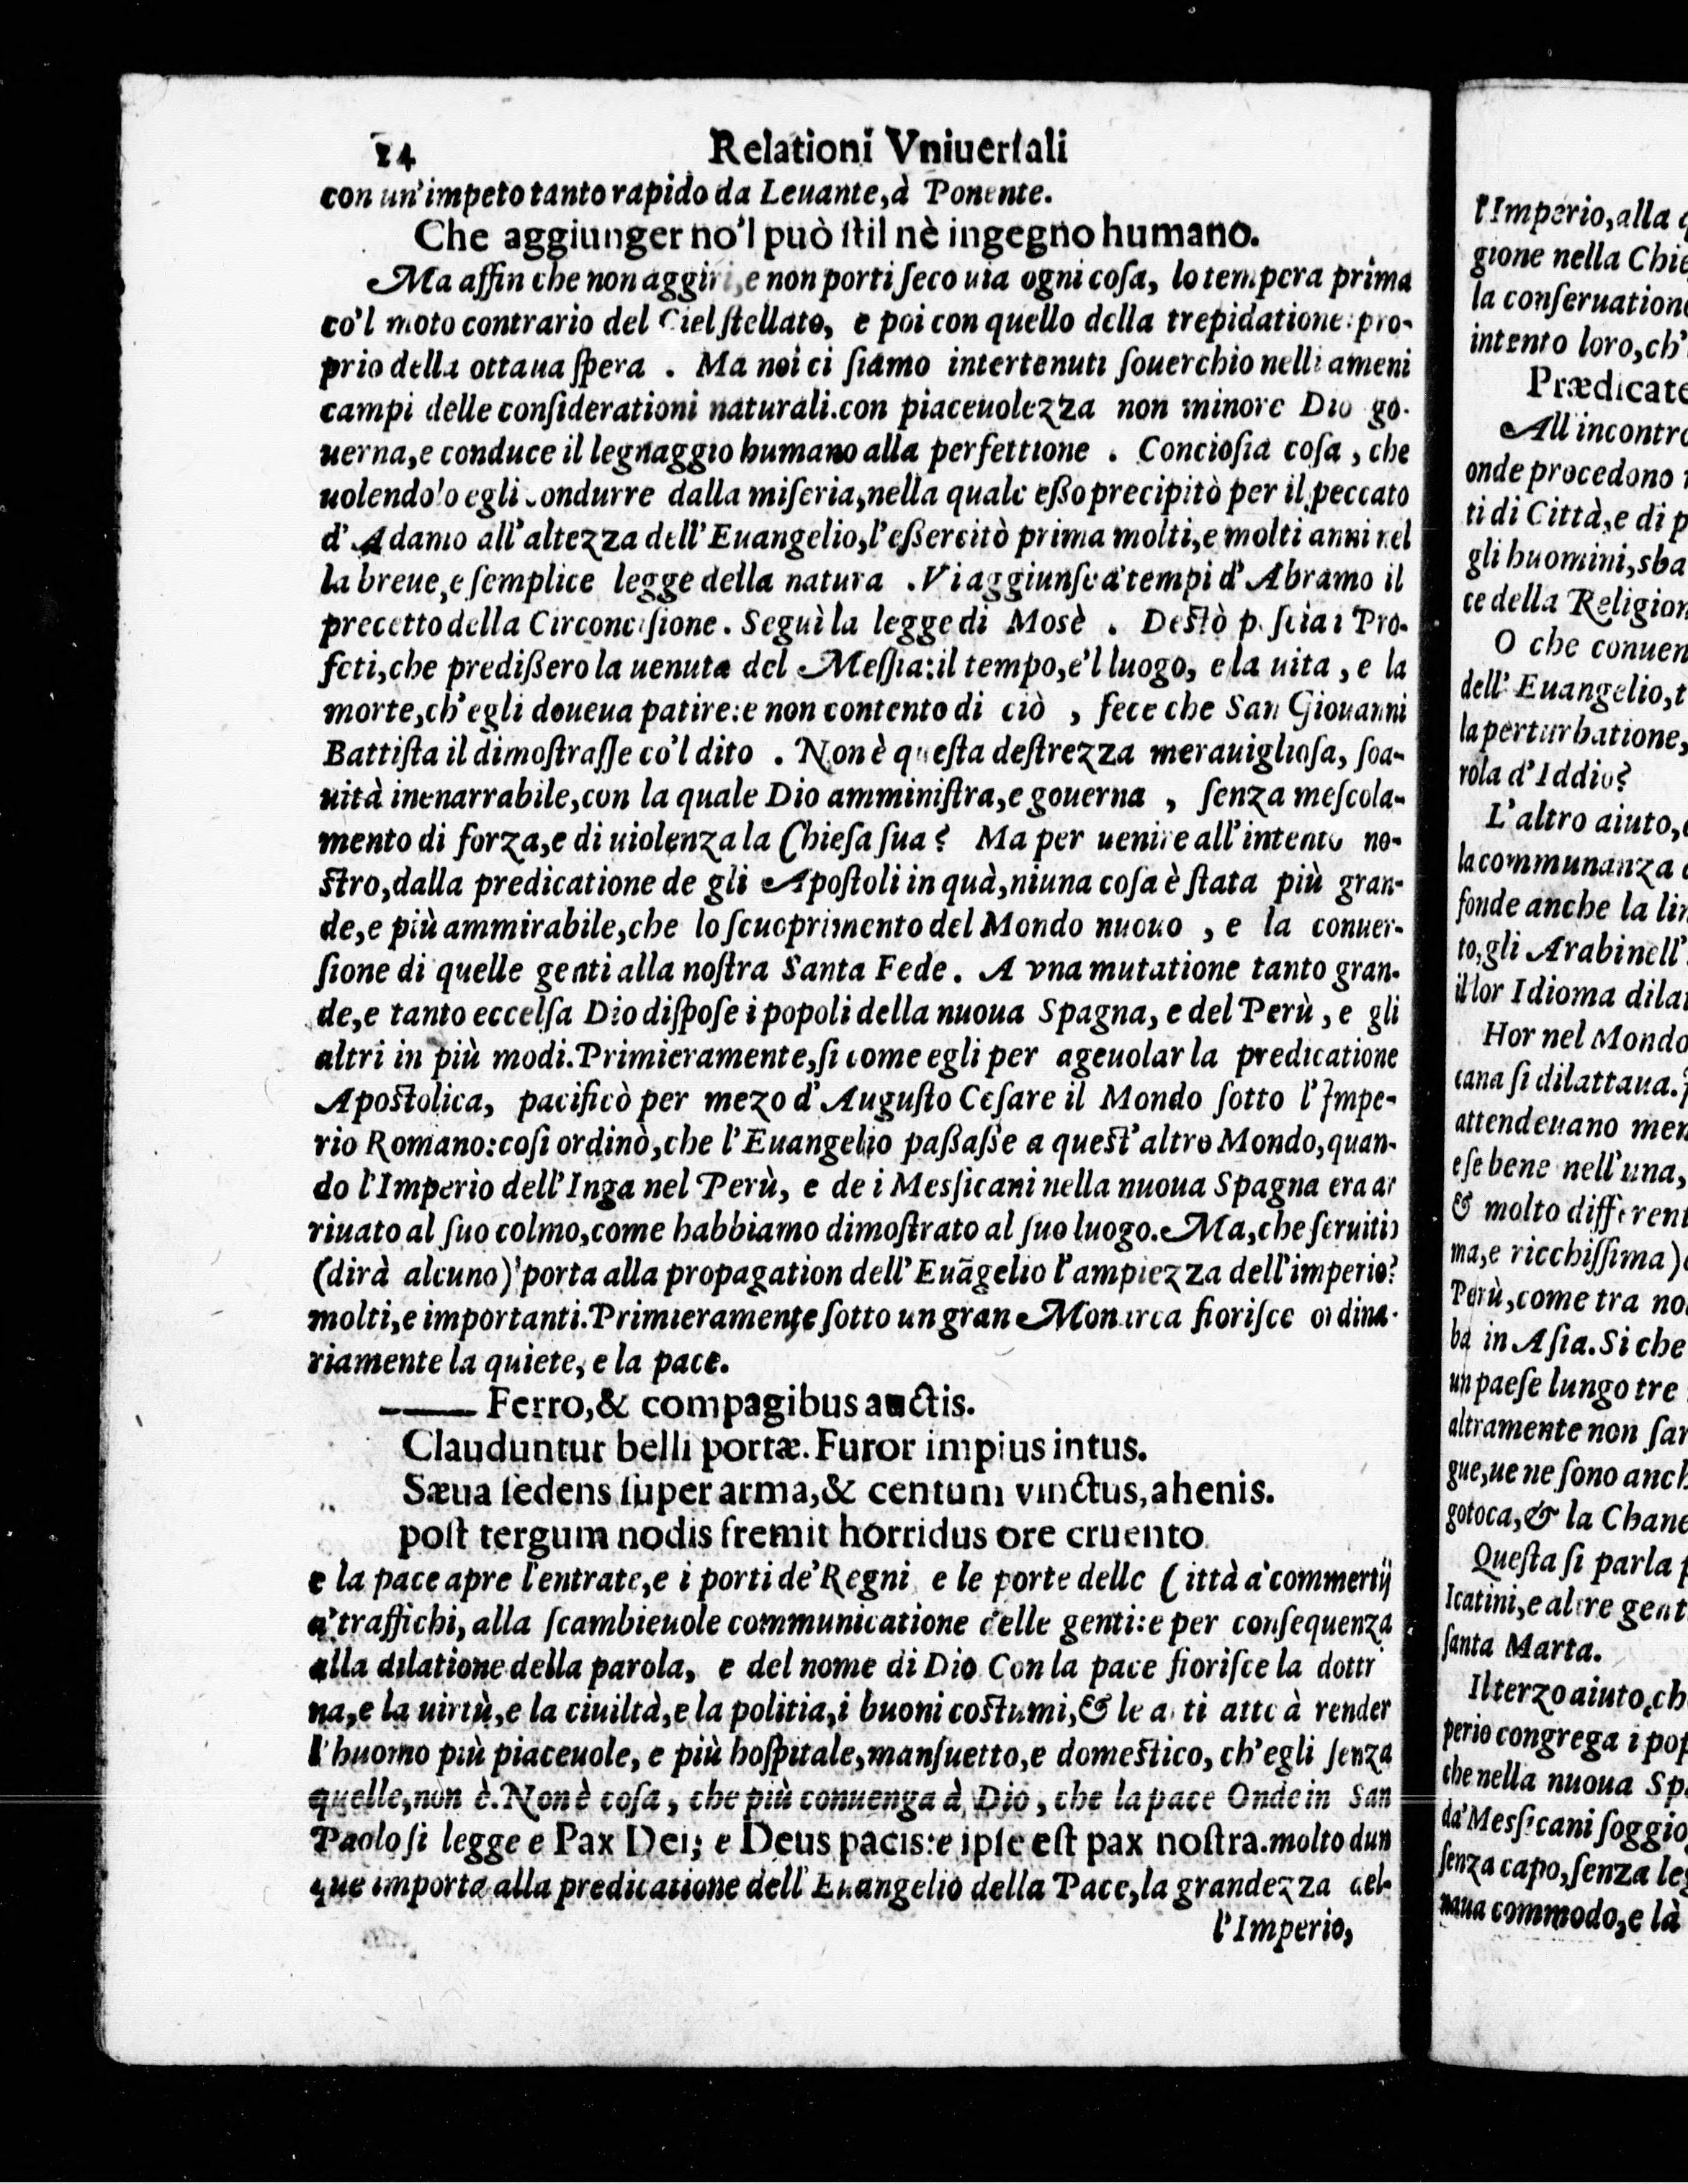 14 Relationi Vniuersali
con un'impeto tanto rapido da Leuante, à Ponente.
Che aggiunger no'l può ſtil nè ingegno humano.
Ma affin che non aggiri, e non porti ſeco uia ogni coſa, lo tempera prima
co'l moto contrario del Ciel ſtellato, e poi con quello della trepidatione: pro-
prio della ottaua ſpera . Ma noi ci ſiamo intertenuti ſouerchio nelli ameni
campi delle conſiderationi naturali.con piaceuolezza non minore Dio go-
uerna,e conduce il legnaggio humano alla perfettione . Concioſia coſa , che
uolendolo egli condurre dalla miſeria,nella quale eßo precipitò per il peccato
d'Adamo all'altezza dell'Euangelio,l'eßercitò prima molti,e molti anni nel
la breue,e ſemplice legge della natura . Vi aggiunſe a' tempi d'Abramo il
precetto della Circonciſione. Seguì la legge di Mosè . Deſtò poſcia i Pro-
feti,che predißero la uenuta del Meſſia:il tempo,e'l luogo, e la uita , e la
morte,ch'egli doueua patire:e non contento di ciò , fece che San Giouanni
Battiſta il dimoſtraſſe co'l dito . Non è queſta deſtrezza merauiglioſa, ſoa-
uità inenarrabile,con la quale Dio amminiſtra,e gouerna , ſenza meſcola-
mento di forza,e di uiolenza la Chieſa ſua? Ma per uenire all'intento no-
ſtro,dalla predicatione de gli Apoſtoli in quà,niuna coſa è ſtata più gran-
de,e più ammirabile,che lo ſcuoprimento del Mondo nuouo , e la conuer-
ſione di quelle genti alla noſtra Santa Fede. A vna mutatione tanto gran-
de,e tanto eccelſa Dio diſpoſe i popoli della nuoua Spagna, e del Perù , e gli
altri in più modi.Primieramente,ſi come egli per ageuolar la predicatione
Apoſtolica, pacificò per mezo d'Auguſto Ceſare il Mondo ſotto l'Impe-
rio Romano:coſi ordinò,che l'Euangelio paßaſſe a queſt'altro Mondo,quan-
do l'Imperio dell'Inga nel Perù, e de i Meſſicani nella nuoua Spagna era ar
riuato al ſuo colmo,come habbiamo dimoſtrato al ſuo luogo. Ma,che ſeruitio
(dirà alcuno) porta alla propagation dell'Euãgelio l'ampiezza dell'imperio?
molti,e importanti.Primieramente ſotto un gran Monarca fioriſce ordina-
riamente la quiete, e la pace.
—— Ferro,& compagibus auctis.
Clauduntur belli portæ. Furor impius intus.
Sæua ſedens ſuper arma,& centum vinctus,ahenis.
poſt tergum nodis fremit horridus ore cruento
e la pace apre l'entrate,e i porti de' Regni e le porte delle Città a' commertij
a' traffichi, alla ſcambieuole communicatione delle genti:e per conſequenza
alla dilatione della parola, e del nome di Dio Con la pace fioriſce la dottr
na,e la uirtù,e la ciuiltà,e la politia,i buoni coſtumi,& le arti atte à render
l'huomo più piaceuole, e più hoſpitale,manſuetto,e domeſtico, ch'egli ſenza
quelle,non è.Non è coſa , che più conuenga à Dio , che la pace Onde in San
Paolo ſi legge e Pax Dei; e Deus pacis:e ipſe eſt pax noſtra.molto dun
que importa alla predicatione dell'Euangelio della Pace,la grandezza del-
l'Imperio,
l'Imperio,alla
gione nella
la conſeruatione
intento loro,ch'
Prædicate
All'incontro
onde procedono
ti di Città,e di
gli huomini,
ce della
O che
dell'Euangelio,
la perturbatione,
rola d'Iddio?
L'altro aiuto,
la communanza
fonde anche la
to,gli Arabi nell'
il lor Idioma
Hor nel Mondo
cana ſi dilattaua.
attendeuano
e ſe bene nell'una,
& molto
ma,e ricchiſſima)
Perù,come tra
ba in Aſia.Si che
un paeſe lungo tre
altramente non
gue,ue ne ſono
gotoca,& la
Queſta ſi parla
Icatini,e altre
ſanta Marta.
Il terzo aiuto,
perio congrega i
che nella nuoua
da' Meſſicani
ſenza capo,ſenza
naua commodo,e là